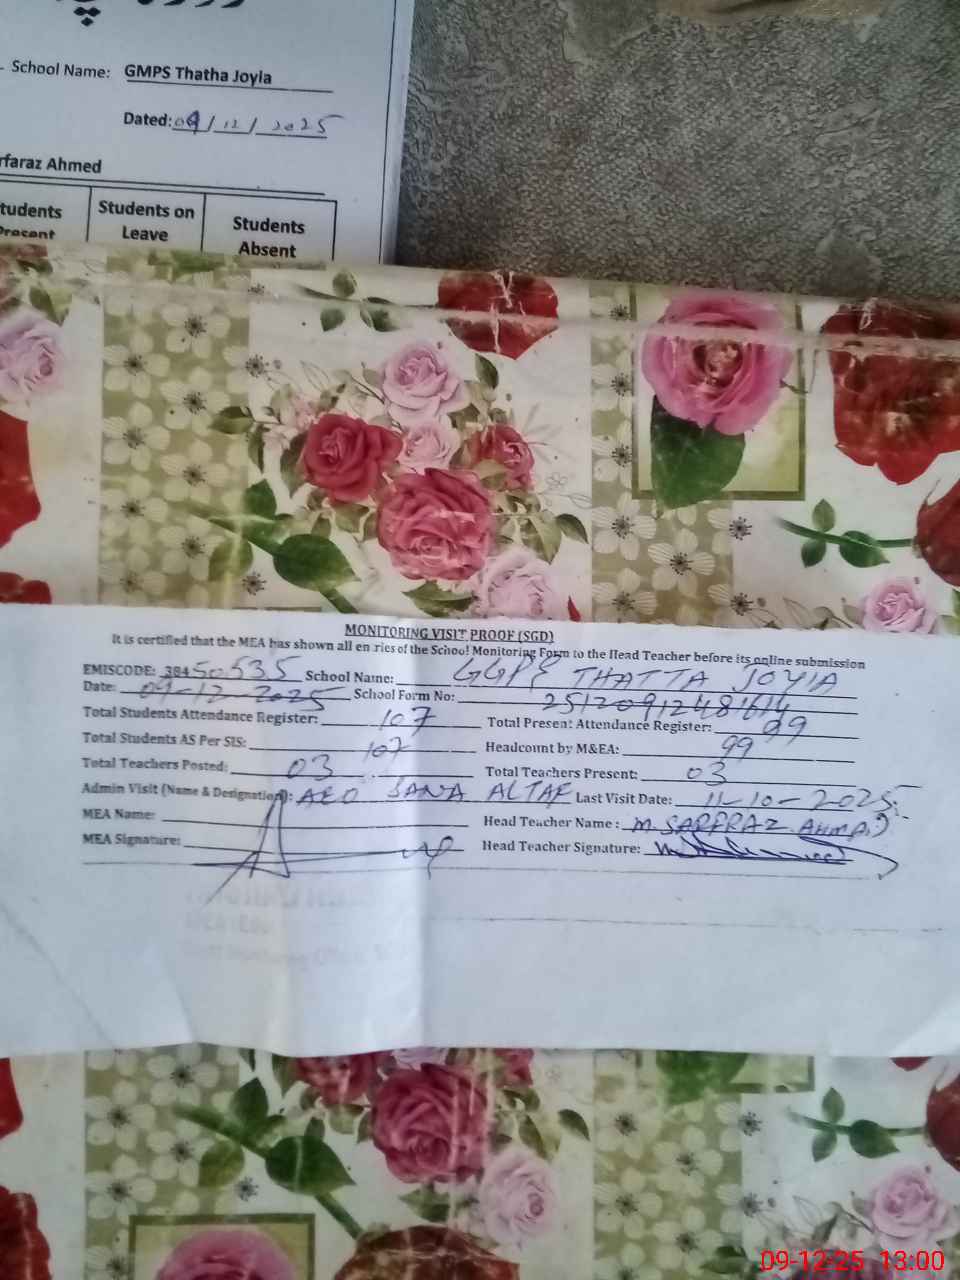 School Name: GMPS Thatha Joyia
Dated: 09/12/2025
rfaraz Ahmed
tudents Present
Students on Leave
Students Absent
MONITORING VISIT PROOF (SGD)
It is certified that the MEA has shown all entries of the School Monitoring Form to the Head Teacher before its online submission
EMISCODE: 38450535 School Name: GGPS THATTA JOYIA
Date: 09-12-2025 School Form No: 25120912481614
Total Students Attendance Register: 107 Total Present Attendance Register: 99
Total Students AS Per SIS: 107 Headcount by M&EA: 99
Total Teachers Posted: 03 Total Teachers Present: 03
Admin Visit (Name & Designation): AEO SANA ALTAF Last Visit Date: 11-10-2025
MEA Name: Head Teacher Name: M. SARFRAZ AHMAD
MEA Signature: Head Teacher Signature:
09-12-25 13:00